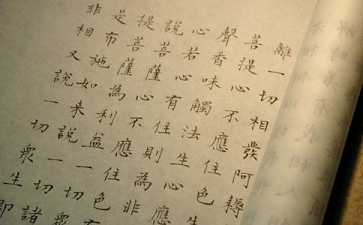 離一切相發阿耨
菩提心不應住色生
聲香味觸法生心應
心若心有住則為非
說菩薩心不應住色
提菩薩為利益一切衆
是布施如来說一切諸
非相又說一切衆生即